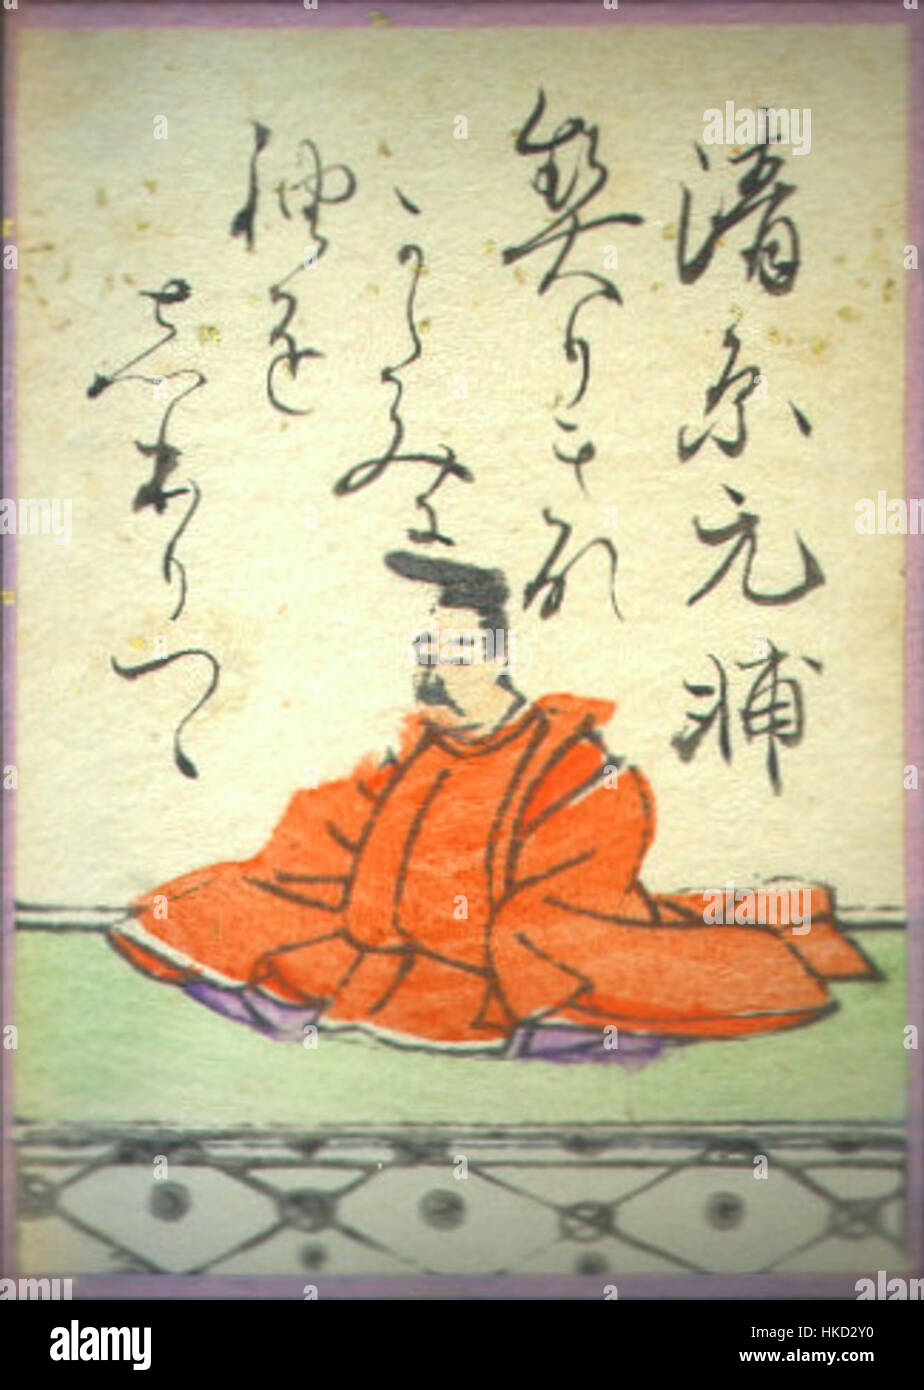 清原元輔
契りきな
かたみに
袖を
しほりつゝ
alamy
Image ID: HKD2Y0
www.alamy.com